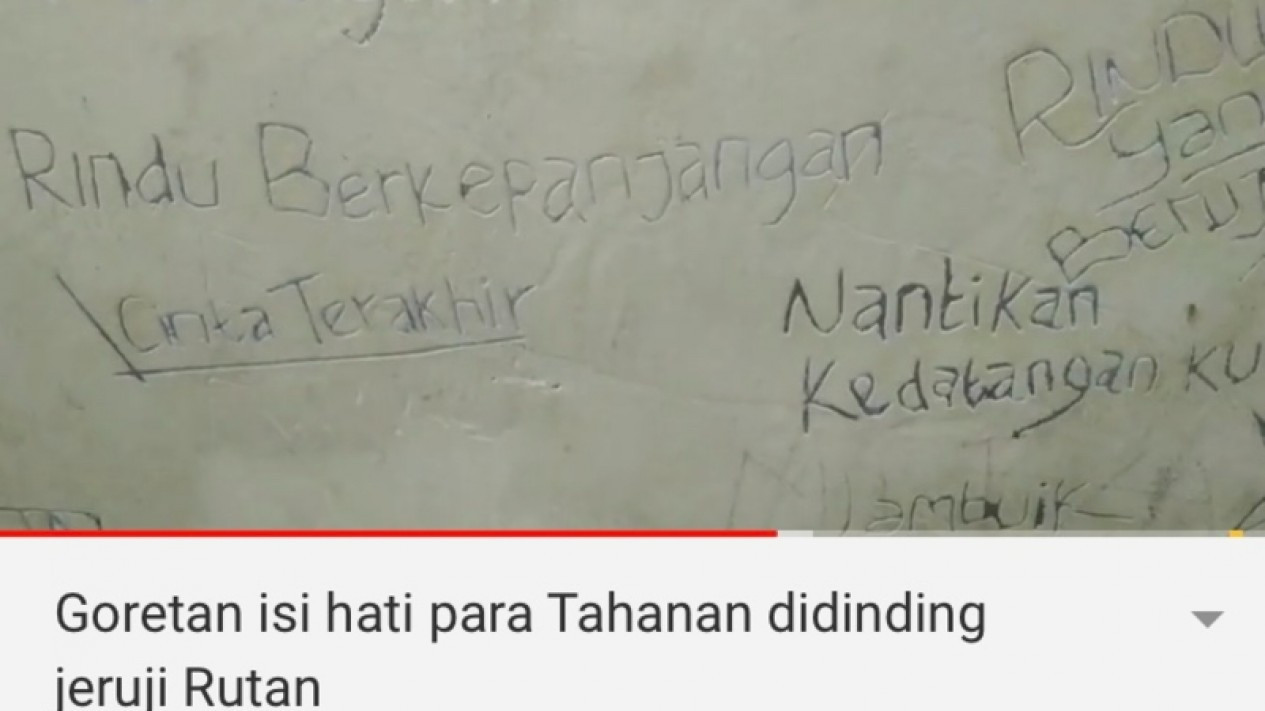 Rindu Berkepanjangan
Cinta Terakhir
RINDU
yan
BERUJ
Nantikan
Kedatangan KU
Goretan isi hati para Tahanan didinding
jeruji Rutan